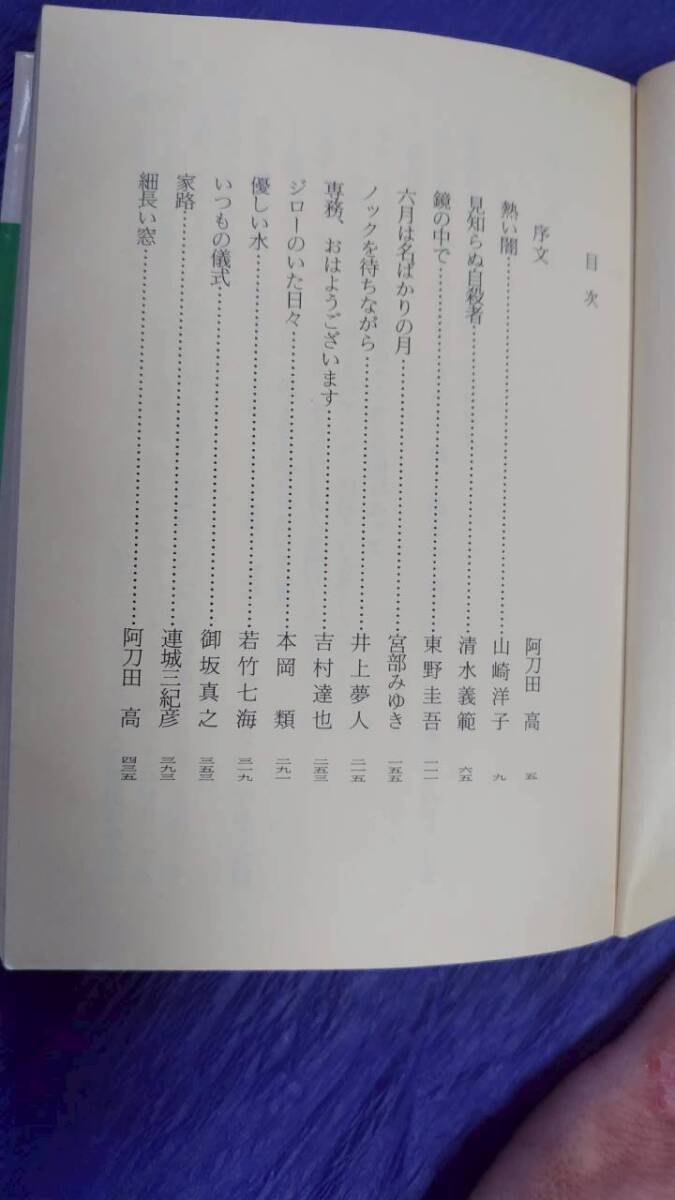 目次
序文 阿刀田 高 五
熱い闇……山崎洋子 九
見知らぬ自殺者……清水義範 六五
鏡の中で……東野圭吾 一一一
六月は名ばかりの月……宮部みゆき 一五五
ノックを待ちながら……井上夢人 二一五
専務、おはようございます……吉村達也 二五三
ジローのいた日々……本岡 類 二九一
優しい水……若竹七海 三一九
いつもの儀式……御坂真之 三五三
家路……連城三紀彦 三九三
細長い窓……阿刀田 高 四三五